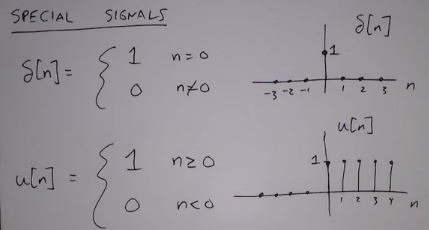 SPECIAL SIGNALS
δ[n] = { 1 n=0
0 n≠0
δ[n]
1
-3 -2 -1 1 2 3 n
u[n] = { 1 n≥0
0 n<0
u[n]
1
1 2 3 4 n